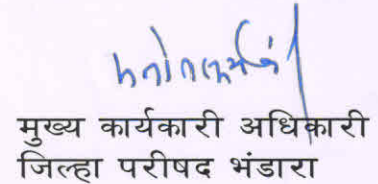 मुख्य कार्यकारी अधिकारी
जिल्हा परीषद भंडारा